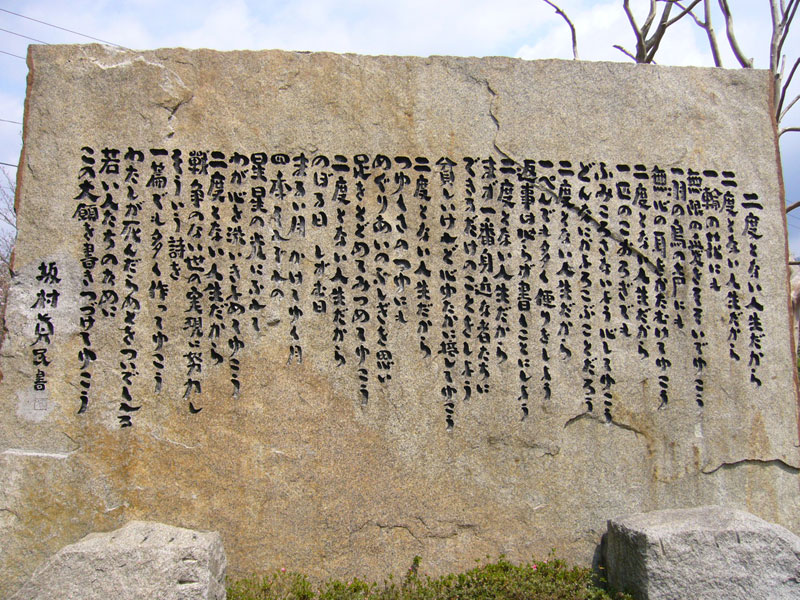 二度とない人生だから
二度とない人生だから
一輪の花にも
無限の愛をそそいでゆこう
一羽の鳥の声にも
無心の耳をかたむけてゆこう
二度とない人生だから
一匹のこおろぎでも
ふみころさないよう心してゆこう
どんなにかよろこぶことだろう
二度とない人生だから
一ぺんでも多く便りをしよう
返事は必らず書くことにしよう
二度とない人生だから
まず一番身近な者たちに
できるだけのことをしよう
貧しいけれど心ゆたかに接してゆこう
二度とない人生だから
つゆくさのつゆにも
めぐりあいのふしぎを思い
足をとどめてみつめてゆこう
二度とない人生だから
のぼる日 しずむ日
まるい月 かけてゆく月
四季それぞれの
星星の光にふれて
わが心を洗いきよめてゆこう
二度とない人生だから
戦争のない世の実現に努力し
そういう詩を
一篇でも多く作ってゆこう
わたしが死んだらあとをついでくれる
若い人たちのために
この大願を書きつづけてゆこう
坂村真民書